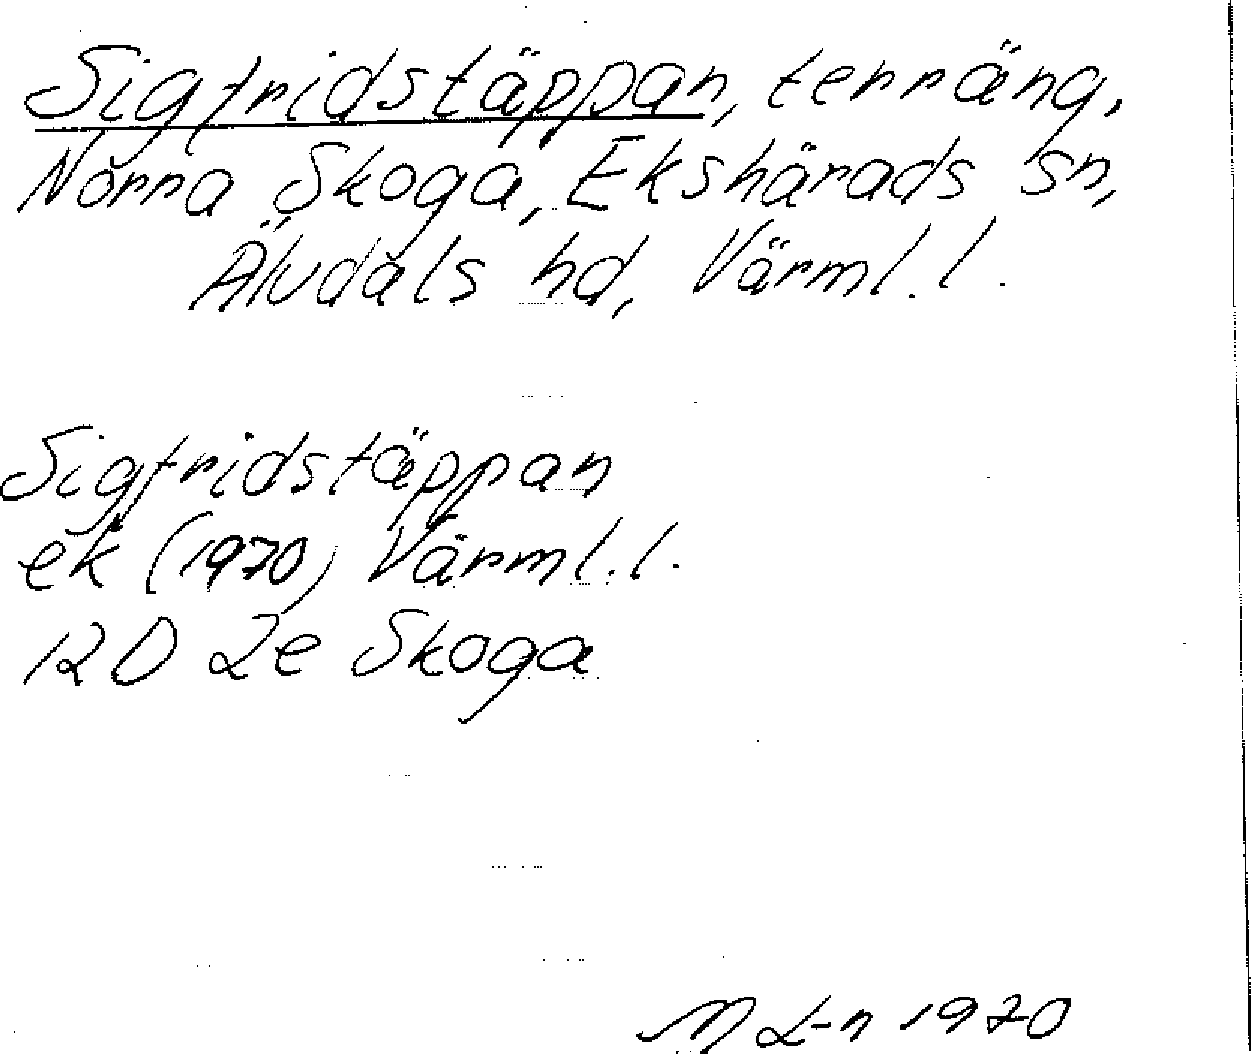 Sigfridstäppan, terräng,
Norra Skoga, Ekshärads sn,
Älvdals hd, Värml. l.
Sigfridstäppan
ek (1970) Värml. l.
12D 2e Skoga
M L-n 1970